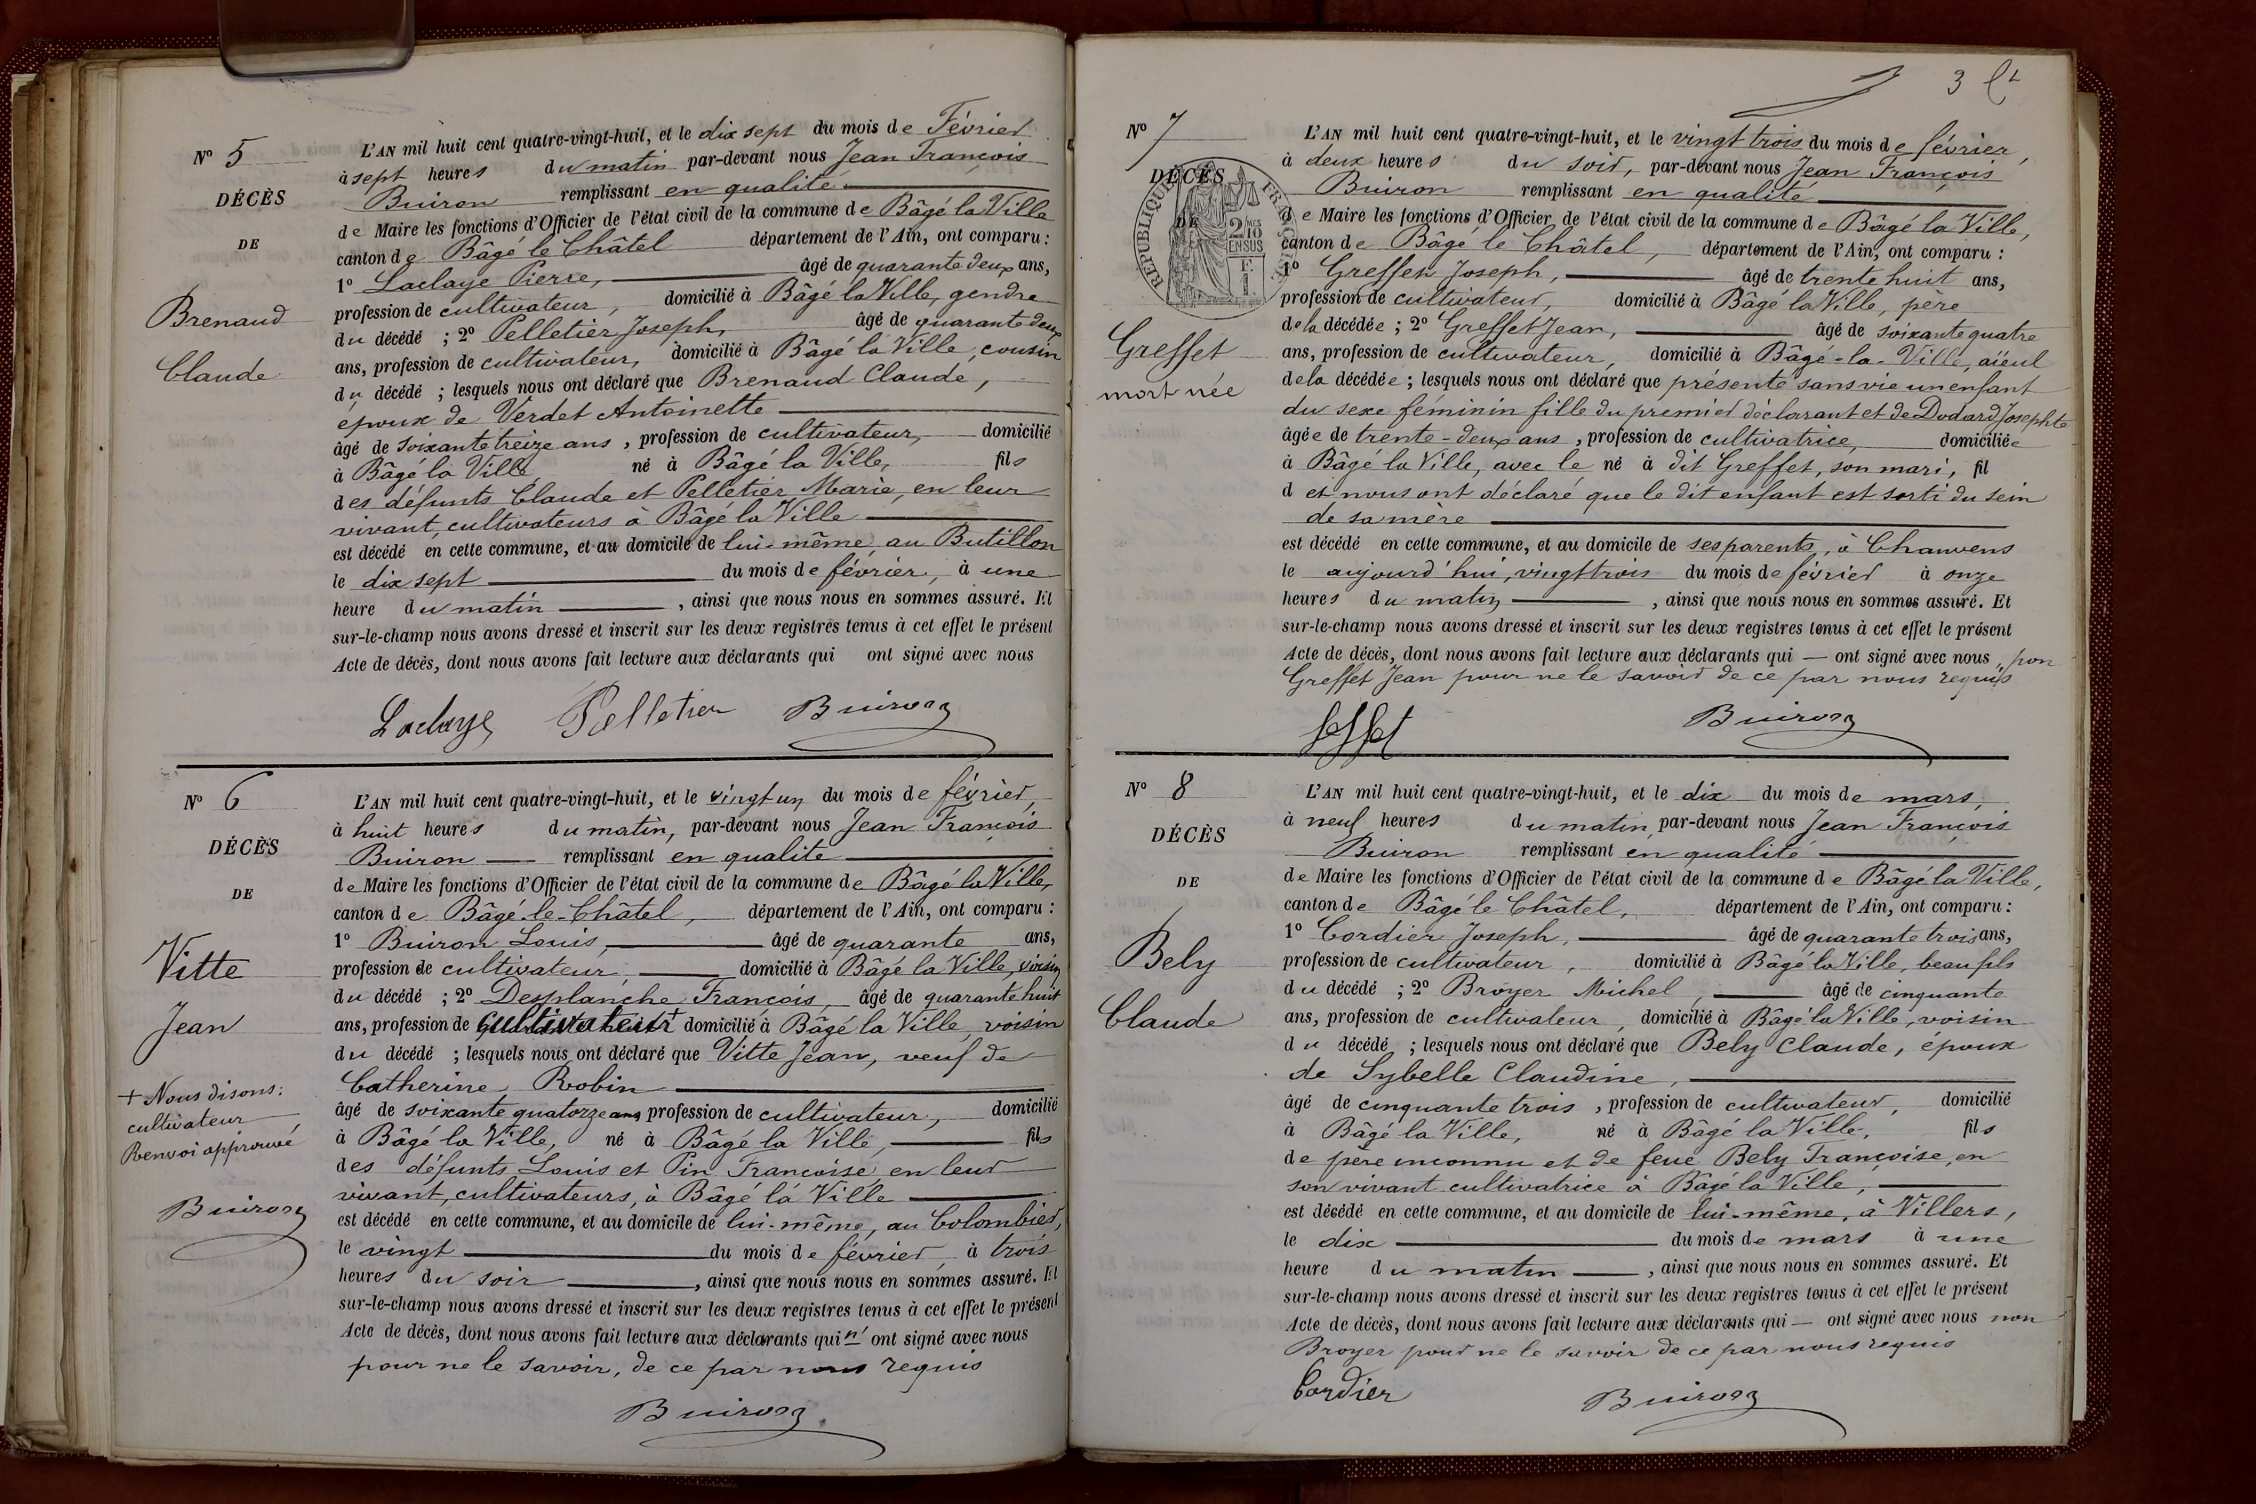 N° 5
DÉCÈS
DE
Brenaud
Claude
L'AN mil huit cent quatre-vingt-huit, et le dix sept du mois de Février
à sept heures du matin par-devant nous Jean François
Buiron remplissant en qualité
de Maire les fonctions d'Officier de l'état civil de la commune de Bâgé la Ville
canton de Bâgé le Châtel département de l'Ain, ont comparu :
1° Laclaye Pierre, âgé de quarante deux ans,
profession de cultivateur, domicilié à Bâgé la Ville, gendre
du décédé ; 2° Pelletier Joseph, âgé de quarante deux
ans, profession de cultivateur, domicilié à Bâgé la Ville, cousin
du décédé ; lesquels nous ont déclaré que Brenaud Claude,
époux de Verdet Antoinette
âgé de soixante treize ans, profession de cultivateur, domicilié
à Bâgé la Ville né à Bâgé la Ville, fils
des défunts Claude et Pelletier Marie, en leur
vivant, cultivateurs à Bâgé la Ville
est décédé en cette commune, et au domicile de lui-même au Butillon
le dix sept du mois de février, à une
heure du matin, ainsi que nous nous en sommes assuré. Et
sur-le-champ nous avons dressé et inscrit sur les deux registres tenus à cet effet le présent
Acte de décès, dont nous avons fait lecture aux déclarants qui ont signé avec nous
Laclaye Pelletier Buiron
N° 6
DÉCÈS
DE
Vitte
Jean
+ Nous disons :
cultivateur
Renvoi approuvé
Buiron
L'AN mil huit cent quatre-vingt-huit, et le vingt un du mois de février,
à huit heures du matin, par-devant nous Jean François
Buiron remplissant en qualité
de Maire les fonctions d'Officier de l'état civil de la commune de Bâgé la Ville,
canton de Bâgé-le-Châtel, département de l'Ain, ont comparu :
1° Buiron Louis, âgé de quarante ans,
profession de cultivateur, domicilié à Bâgé la Ville, voisin
du décédé ; 2° Desplanche François, âgé de quarante huit
ans, profession de cultivateur + domicilié à Bâgé la Ville, voisin
du décédé ; lesquels nous ont déclaré que Vitte Jean, veuf de
Catherine Robin
âgé de soixante quatorze ans, profession de cultivateur, domicilié
à Bâgé la Ville, né à Bâgé la Ville, fils
des défunts Louis et Pin Françoise, en leur
vivant, cultivateurs, à Bâgé la Ville
est décédé en cette commune, et au domicile de lui-même, au Colombier,
le vingt du mois de février, à trois
heures du soir, ainsi que nous nous en sommes assuré. Et
sur-le-champ nous avons dressé et inscrit sur les deux registres tenus à cet effet le présent
Acte de décès, dont nous avons fait lecture aux déclarants qui n'ont signé avec nous
pour ne le savoir, de ce par nous requis
Buiron
3
N° 7
DÉCÈS
DE
RÉPUBLIQUE FRANÇAISE
2/10 EN SUS
Greffet
mort née
L'AN mil huit cent quatre-vingt-huit, et le vingt trois du mois de février,
à deux heures du soir, par-devant nous Jean François
Buiron remplissant en qualité
de Maire les fonctions d'Officier de l'état civil de la commune de Bâgé la Ville,
canton de Bâgé le Châtel, département de l'Ain, ont comparu :
1° Greffet Joseph, âgé de trente huit ans,
profession de cultivateur, domicilié à Bâgé la Ville, père
de la décédée ; 2° Greffet Jean, âgé de soixante quatre
ans, profession de cultivateur, domicilié à Bâgé-la-Ville, aïeul
de la décédée ; lesquels nous ont déclaré que présente sans vie un enfant
du sexe féminin fille du premier déclarant et de Dodard Josephte
âgée de trente-deux ans, profession de cultivatrice, domiciliée
à Bâgé la Ville, avec le né à dit Greffet, son mari, fil
d et nous ont déclaré que le dit enfant est sorti du sein
de sa mère
est décédé en cette commune, et au domicile de ses parents, à Chanvens
le aujourd'hui, vingt trois du mois de février à onze
heures du matin, ainsi que nous nous en sommes assuré. Et
sur-le-champ nous avons dressé et inscrit sur les deux registres tenus à cet effet le présent
Acte de décès, dont nous avons fait lecture aux déclarants qui — ont signé avec nous, non
Greffet Jean pour ne le savoir de ce par nous requis
Buiron
N° 8
DÉCÈS
DE
Bely
Claude
L'AN mil huit cent quatre-vingt-huit, et le dix du mois de mars,
à neuf heures du matin, par-devant nous Jean François
Buiron remplissant en qualité
de Maire les fonctions d'Officier de l'état civil de la commune de Bâgé la Ville,
canton de Bâgé le Châtel, département de l'Ain, ont comparu :
1° Cordier Joseph, âgé de quarante trois ans,
profession de cultivateur, domicilié à Bâgé la Ville, beau fils
du décédé ; 2° Broyer Michel, âgé de cinquante
ans, profession de cultivateur, domicilié à Bâgé la Ville, voisin
du décédé ; lesquels nous ont déclaré que Bely Claude, époux
de Sybelle Claudine,
âgé de cinquante trois, profession de cultivateur, domicilié
à Bâgé la Ville, né à Bâgé la Ville, fils
de père inconnu et de feue Bely Françoise, en
son vivant cultivatrice à Bâgé la Ville,
est décédé en cette commune, et au domicile de lui-même, à Villers,
le dix du mois de mars à une
heure du matin, ainsi que nous nous en sommes assuré. Et
sur-le-champ nous avons dressé et inscrit sur les deux registres tenus à cet effet le présent
Acte de décès, dont nous avons fait lecture aux déclarants qui — ont signé avec nous non
Broyer pour ne le savoir de ce par nous requis
Cordier Buiron